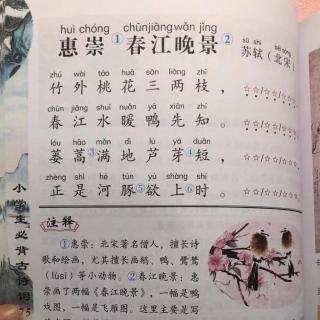 huì chóng chūnjiāng wǎn jǐng
惠崇①春江晚景②
sū shì
苏轼(北宋)
zhú wài táo huā sān liǎng zhī
竹外桃花三两枝,
chūn jiāng shuǐ nuǎn yā xiān zhī
春江水暖鸭先知。
lóu hāo mǎn dì lú yá duǎn
蒌蒿③满地芦芽④短,
zhèng shì hé tún yù shàng shí
正是河豚⑤欲上⑥时。
注释
①惠崇:北宋著名僧人,擅长诗
歌和绘画,尤其擅长画鹅、鸭、鹭鸶
(lùsī)等小动物。②春江晚景:惠
崇画了两幅《春江晚景》,一幅是鸭
戏图,一幅是飞雁图。这里主要是写
小学生必背古诗词
75